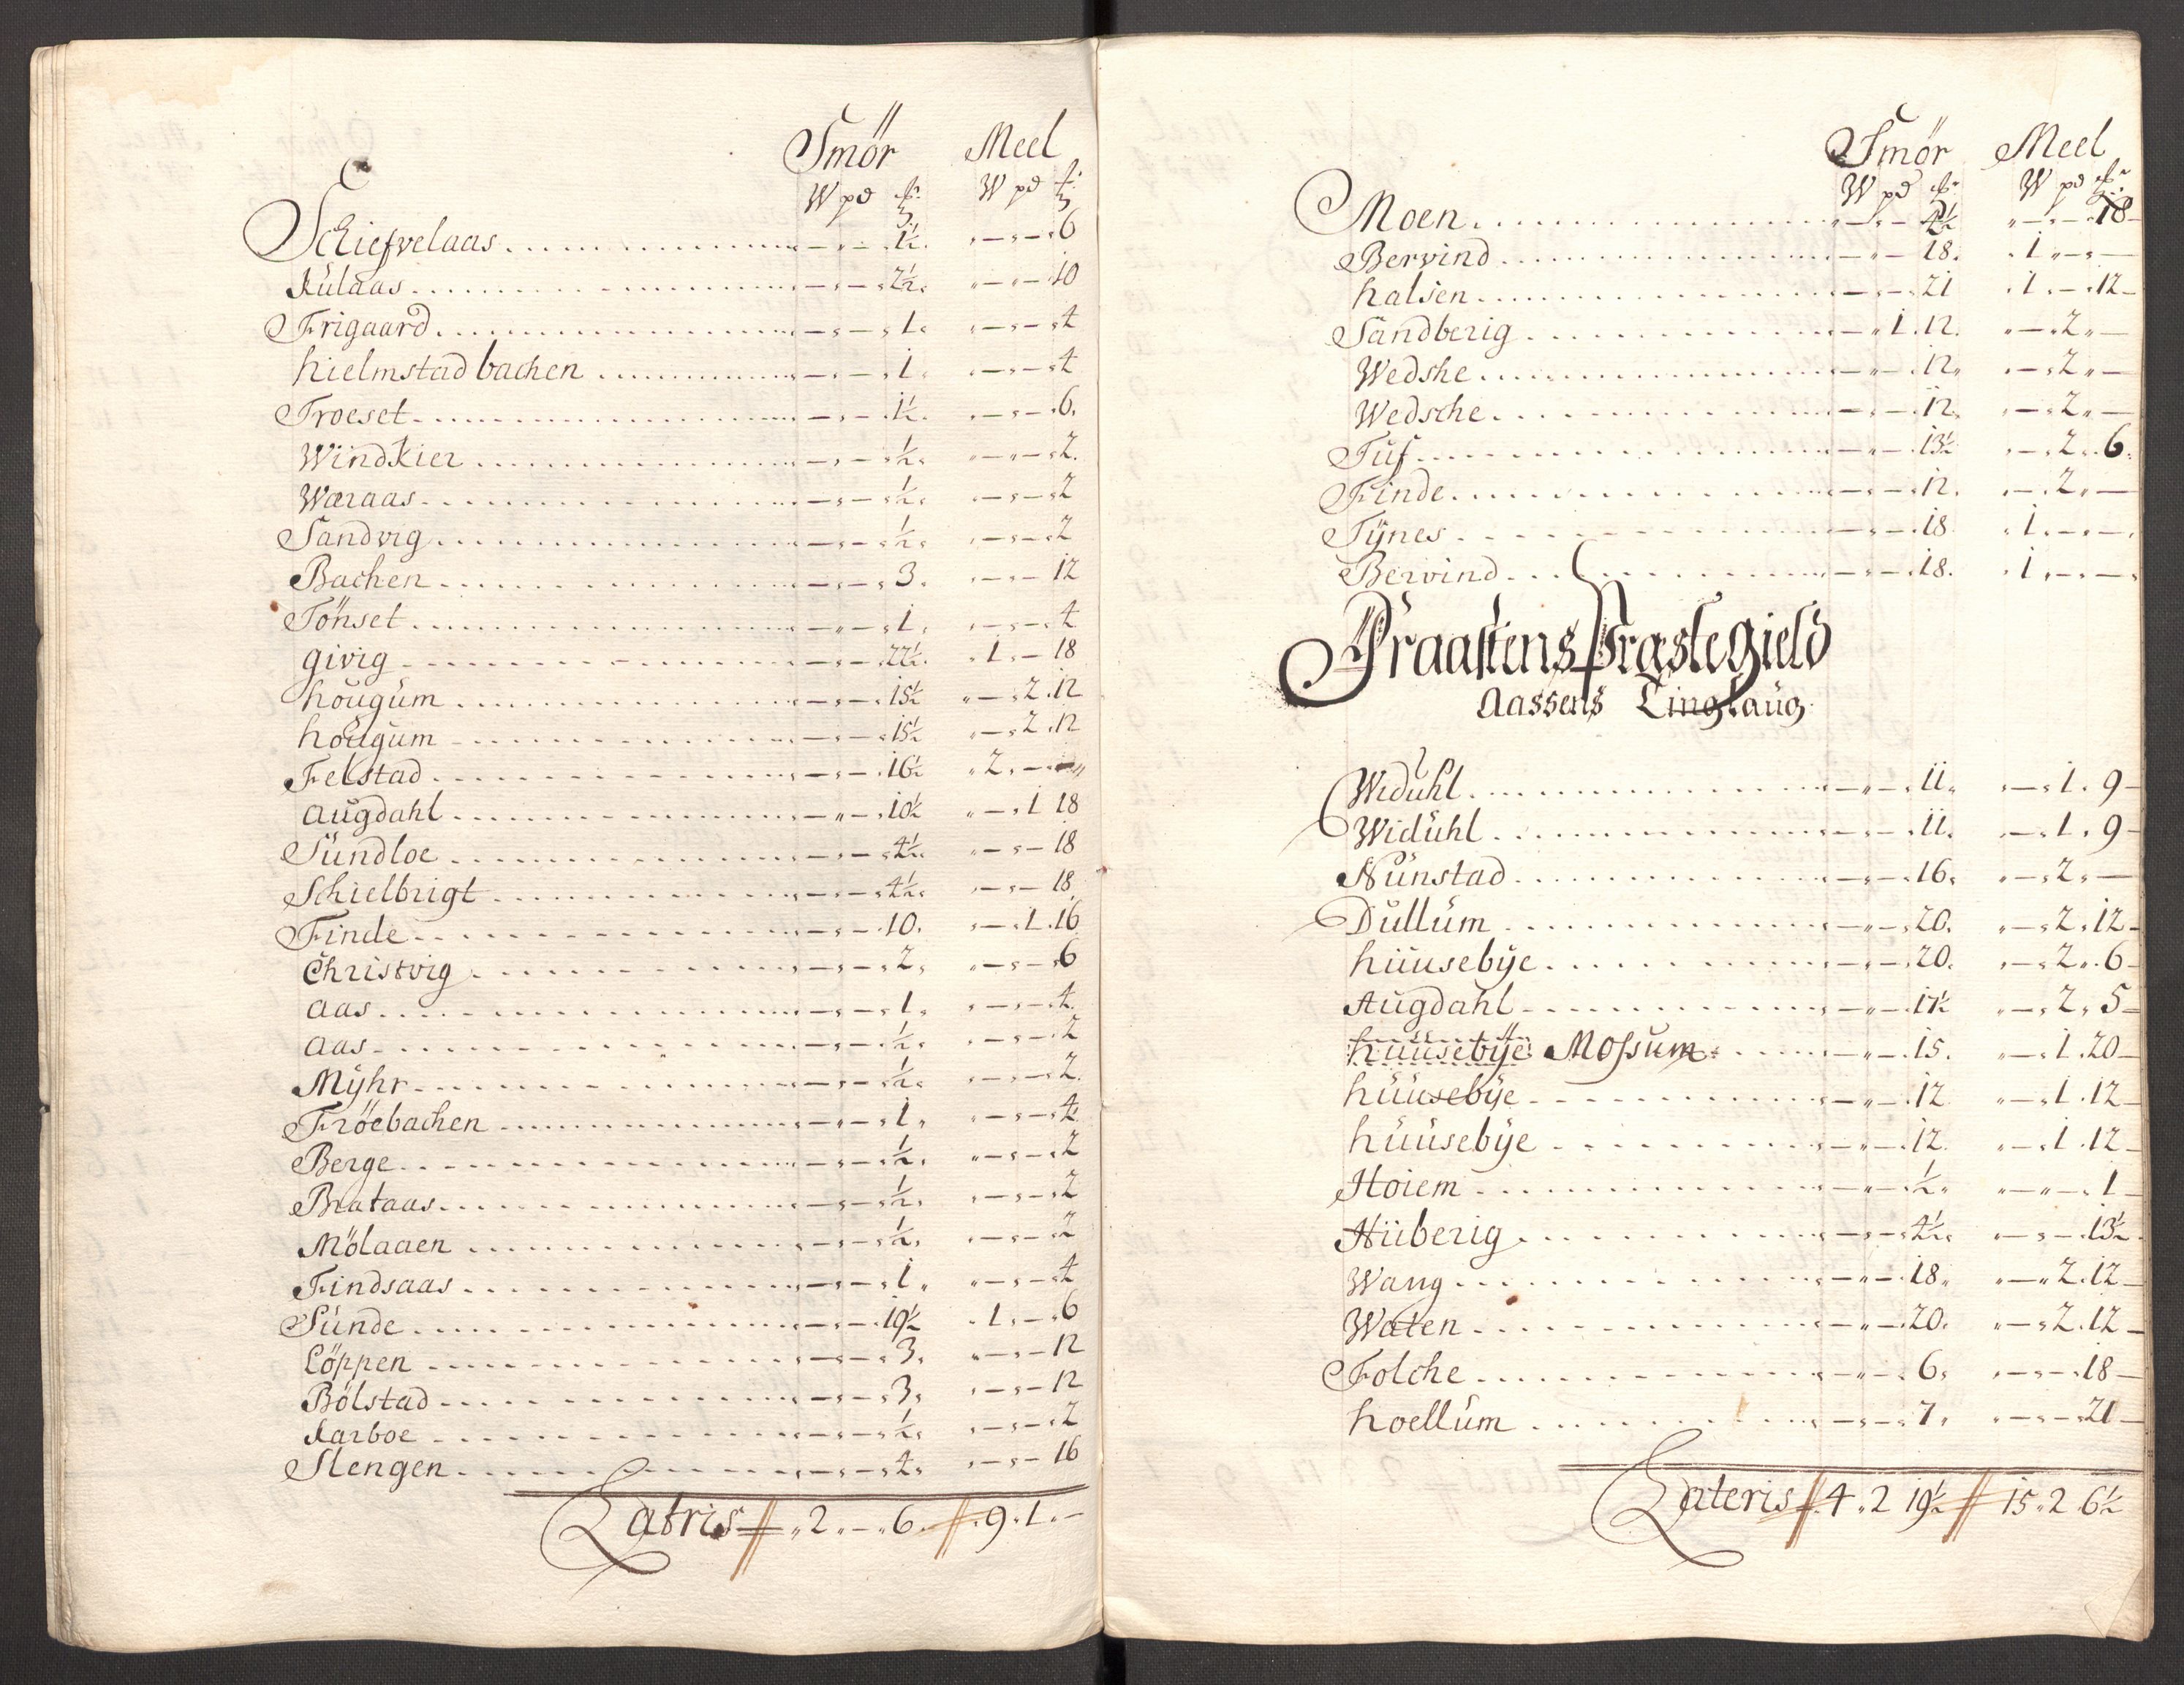 Smör Meel
W pd W pd
Schiefvelaas - - 1½ - - 6
Kulaas - - 2½ - - 10
Frigaard - - 1 - - 4
hielmstad bachen - - 1 - - 4
Troeset - - 1½ - - 6
Windkier - - ½ - - 2
Wæraas - - ½ - - 2
Sandvig - - ½ - - 2
Bachen - - 3 - - 12
Tönset - - 1 - - 4
givig - - 22½ 1 - 18
hougum - - 15½ - 2 12
hougum - - 15½ - 2 12
Felstad - - 16½ 2 - -
Augdahl - - 10½ - 1 18
Sundloe - - 4½ - - 18
Schielbrigt - - 4½ - - 18
Finde - - 10 - 1 16
Christvig - - 2 - - 6
Aas - - 1 - - 4
Aas - - ½ - - 2
Mÿhr - - ½ - - 2
Fröebachen - - 1 - - 4
Berge - - ½ - - 2
Brataas - - ½ - - 2
Mölaaen - - ½ - - 2
Findsaas - - 1 - - 4
Sunde - - 19½ 1 - 6
Löppen - - 3 - - 12
Bölstad - - 3 - - 12
Karboe - - ½ - - 2
Slengen - - 4 - - 16
Latris 2 - 6 9 1 -
Smör Meel
W pd W pd
Moen - - 4½ - - 18
Bervind - - 18 1 - -
halsen - - 21 1 - 12
Sandberig - 1 12 - 2 -
Wedshe - - 12 - 2 -
Wedsche - - 12 - 2 -
Tuf - - 13½ - 2 6
Finde - - 12 - 2 -
Tÿnes - - 18 1 - -
Bervind - - 18 1 - -
Præstegield
Aassens Tinglaug
Widuhl - - 11 - 1 9
Widuhl - - 11 - 1 9
Nunstad - - 16 - 2 -
Dullum - - 20 - 2 12
huusebÿe - - 20 - 2 6
Augdahl - - 17½ - 2 5
huusebÿe Mossum - - 15 - 1 20
huusebÿe - - 12 - 1 12
huusebÿe - - 12 - 1 12
Hoiem - - ½ - - 1
Huberig - - 4½ - - 13½
Wang - - 18 - 2 12
Waten - - 20 - 2 12
Folche - - 6 - - 18
hoellum - - 7 - - 21
Lateris 4 2 19½ 15 2 6½